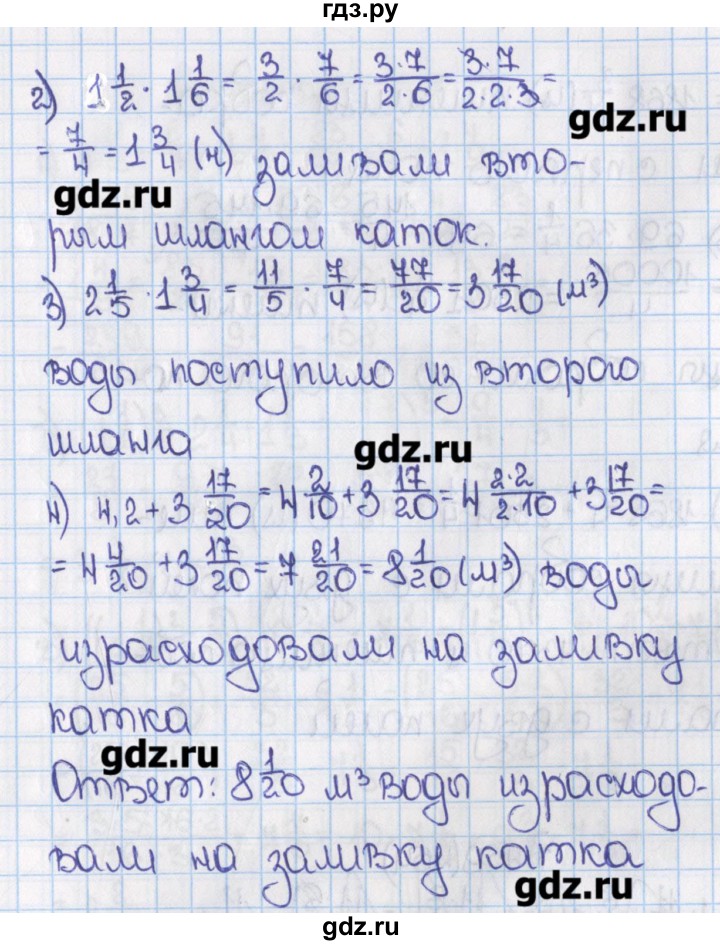 гдз.ру
2) 1 1/2 · 1 1/6 = 3/2 · 7/6 = 3·7/2·6 = 3·7/2·2·3 =
gdz.ru
= 7/4 = 1 3/4 (ч) заливали вто-
gdz.ru
рым шлангом каток.
3) 2 1/5 · 1 3/4 = 11/5 · 7/4 = 77/20 = 3 17/20 (м³)
воды поступило из второго
шланга
gdz.ru
4) 4,2 + 3 17/20 = 4 2/10 + 3 17/20 = 4 2·2/2·10 + 3 17/20 =
= 4 4/20 + 3 17/20 = 7 21/20 = 8 1/20 (м³) воды
израсходовали на заливку
катка
gdz.ru
Ответ: 8 1/20 м³ воды израсходо-
вали на заливку катка
gdz.ru
gdz.ru